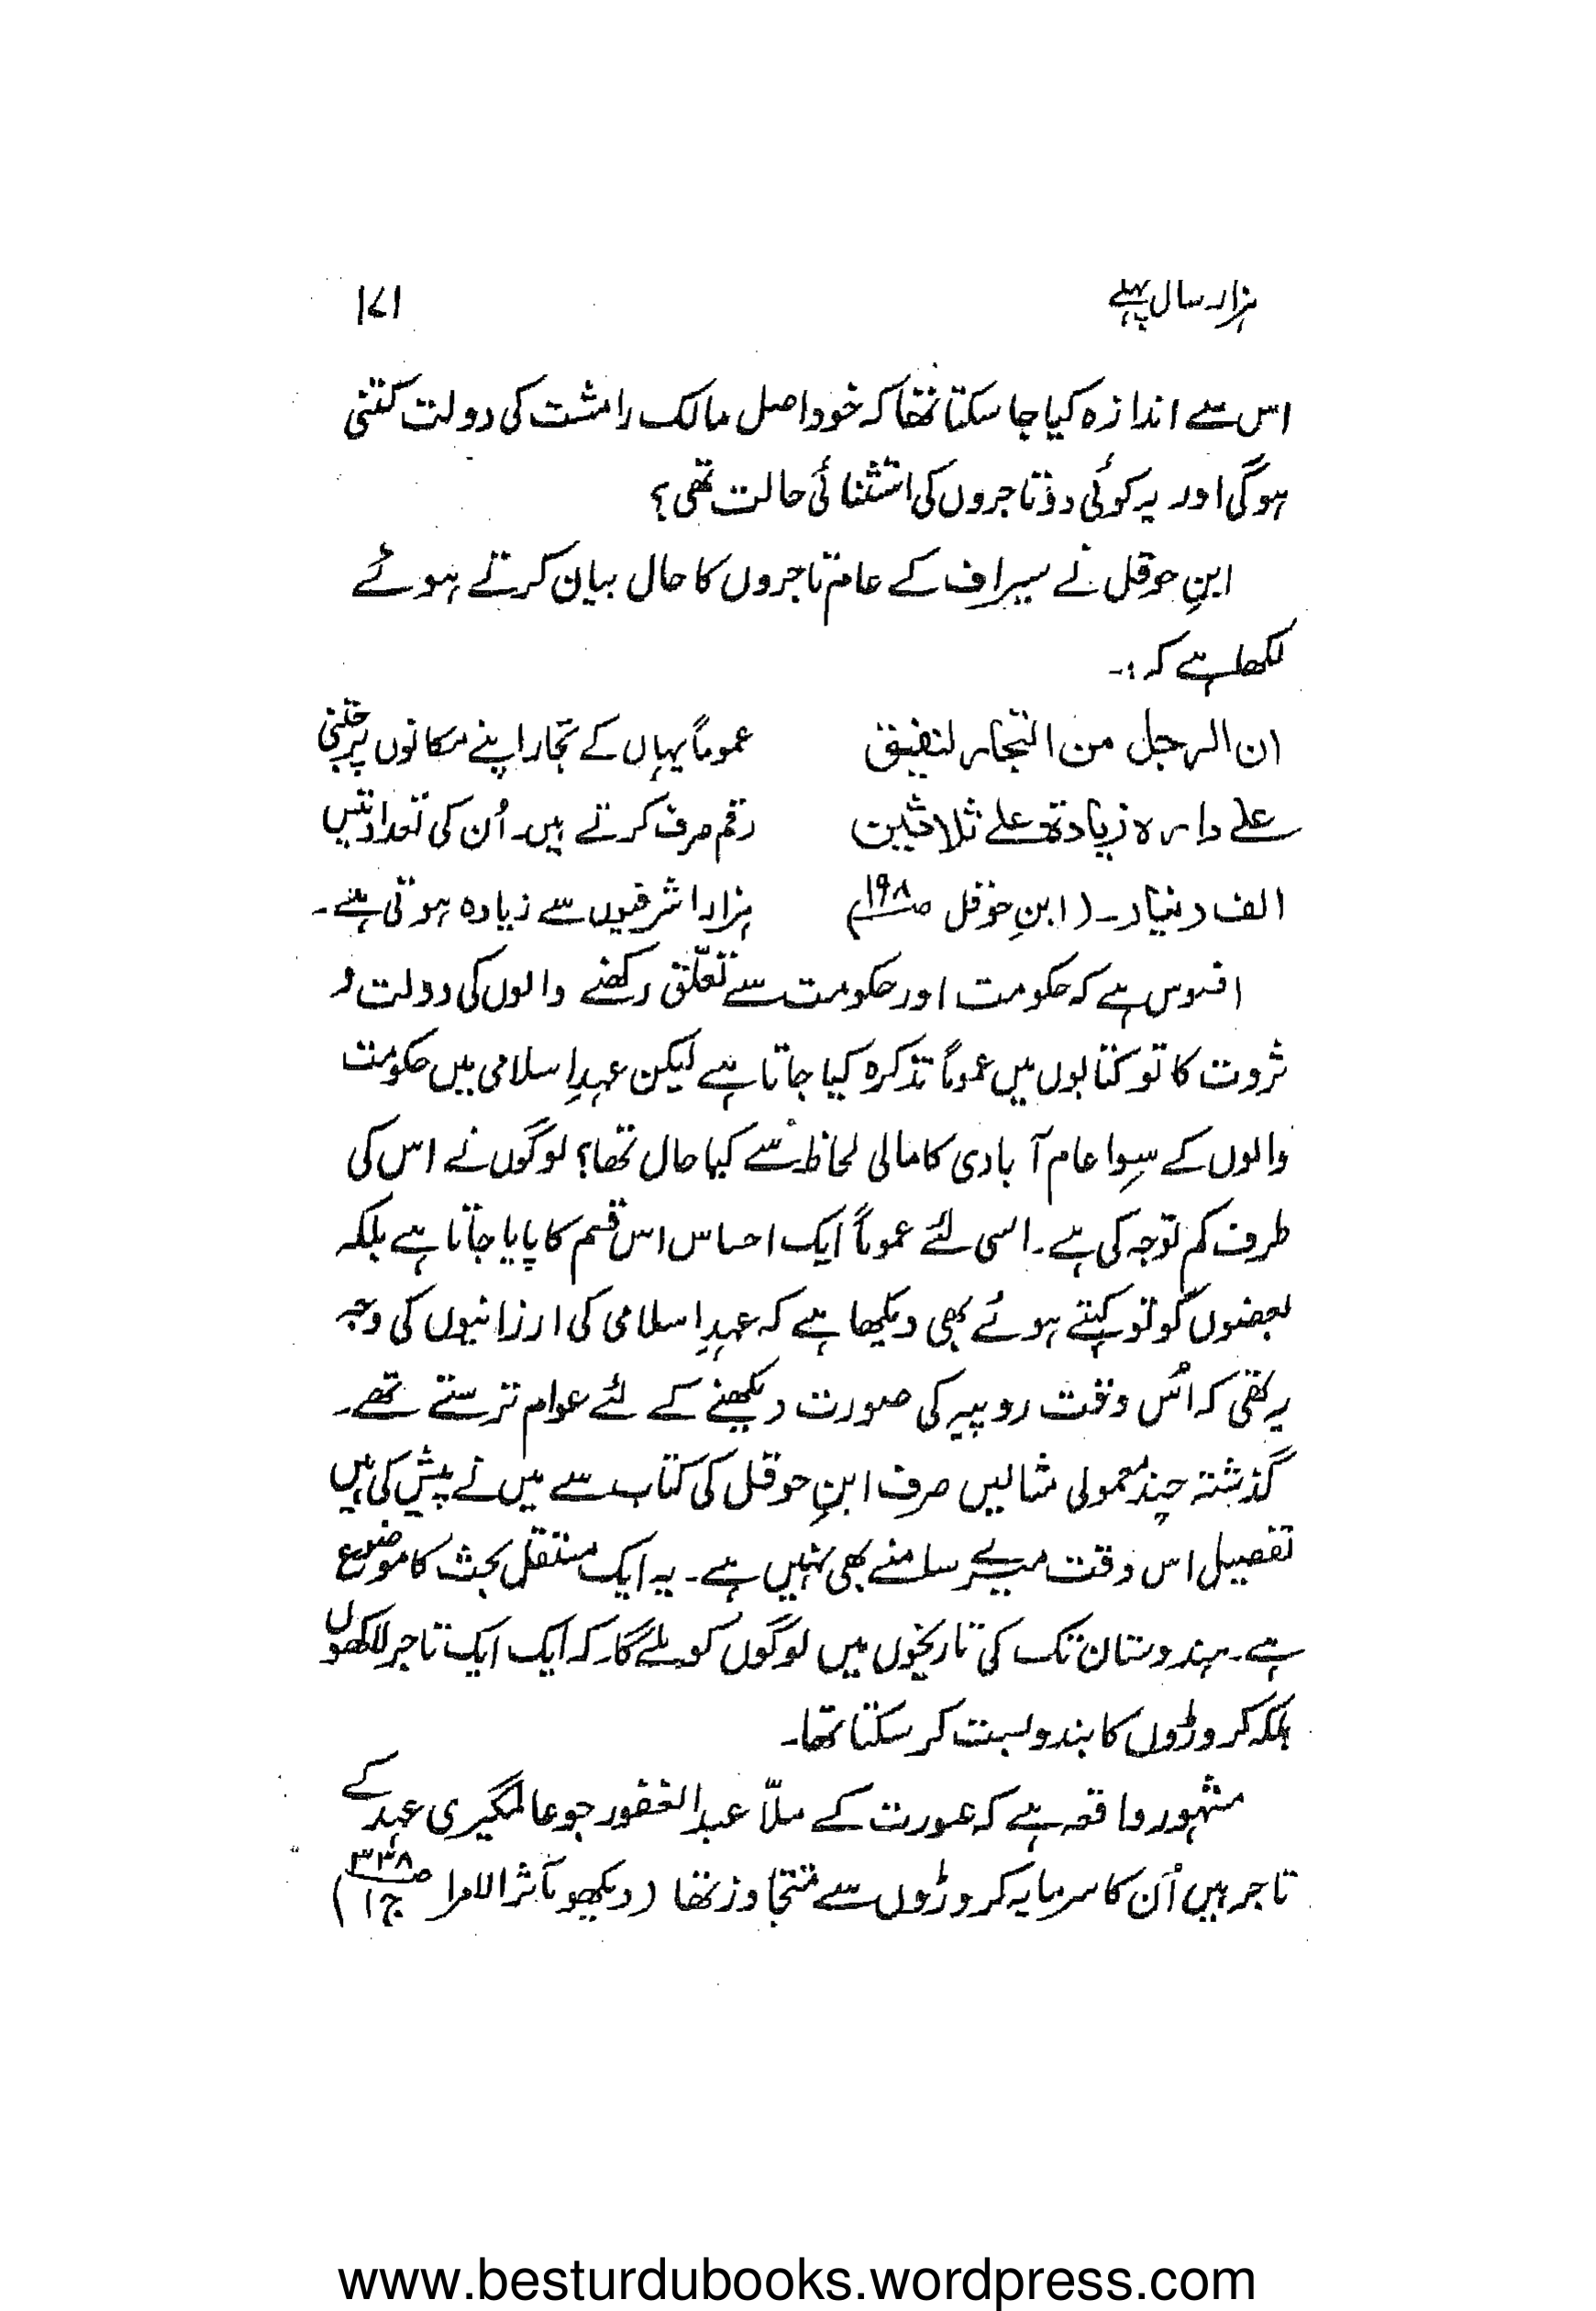 ہزار سال پہلے
۱۷۱
اس سے اندازہ کیا جا سکتا تھا کہ خود اصل مالک رامشت کی دولت کتنی
ہوگی اور یہ کوئی دو تاجروں کی استثنائی حالت تھی؟
ابنِ حوقل نے سیراف کے عام تاجروں کا حال بیان کرتے ہوئے
لکھا ہے کہ :-
ان الرجل من التجار لنفیق
علے دارہ زیادۃ علے ثلاثین
الف دینار۔ (ابنِ حوقل ص۱۹۸)
عموماً یہاں کے تجار اپنے مکانوں پر جتنی
رقم صرف کرتے ہیں۔ اُن کی تعداد تیس
ہزار اشرفیوں سے زیادہ ہوتی ہے۔
افسوس ہے کہ حکومت اور حکومت سے تعلّق رکھنے والوں کی دولت و
ثروت کا تو کتابوں میں عموماً تذکرہ کیا جاتا ہے لیکن عہدِ اسلامی میں حکومت
والوں کے سِوا عام آبادی کا مالی لحاظ سے کیا حال تھا؟ لوگوں نے اس کی
طرف کم توجہ کی ہے۔ اسی لئے عموماً ایک احساس اس قسم کا پایا جاتا ہے بلکہ
بعضوں کو تو کہتے ہوئے بھی دیکھا ہے کہ عہدِ اسلامی کی ارزانیوں کی وجہ
یہ تھی کہ اُس وقت روپیہ کی صورت دیکھنے کے لئے عوام ترستے تھے۔
گذشتہ چند معمولی مثالیں صرف ابنِ حوقل کی کتاب سے میں نے پیش کی ہیں
تفصیل اس وقت میرے سامنے بھی نہیں ہے۔ یہ ایک مستقل بحث کا موضوع
ہے۔ ہندوستان تک کی تاریخوں میں لوگوں کو ملے گا۔ کہ ایک ایک تاجر لاکھوں
بلکہ کروڑوں کا بندوبست کر سکتا تھا۔
مشہور واقعہ ہے کہ سورت کے ملّا عبدالغفور جو عالمگیری عہد کے
تاجر ہیں اُن کا سرمایہ کروڑوں سے متجاوز تھا (دیکھو مآثر الامرا ص۳۳۸ ج۱)
www.besturdubooks.wordpress.com